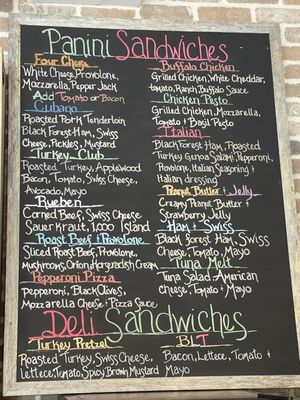 Panini Sandwiches
Four Cheese
White Cheese, Provolone,
Mozzarella, Pepper Jack
Add Tomato or Bacon
Cubano
Roasted Pork Tenderloin
Black Forest Ham, Swiss
Cheese, Pickles, Mustard
Turkey Club
Roasted Turkey, Applewood
Bacon, Tomato, Swiss Cheese,
Avocado, Mayo
Rueben
Corned Beef, Swiss Cheese
Sauerkraut, 1,000 Island
Roast Beef + Provolone
Sliced Roast Beef, Provolone,
Mushrooms, Onion, Horseradish Cream
Pepperoni Pizza
Pepperoni, Black Olives,
Mozzarella Cheese + Pizza Sauce
Buffalo Chicken
Grilled Chicken, White Cheddar,
tomato, Ranch, Buffalo Sauce
Chicken Pesto
Grilled Chicken, Mozzarella,
Tomato + Basil Pesto
Italian
Black Forest Ham, Roasted
Turkey, Genoa Salami, Pepperoni,
Provolone, Italian Seasoning +
Italian dressing
Peanut Butter + Jelly
Creamy Peanut Butter +
Strawberry Jelly
Ham + Swiss
Black Forest Ham, Swiss
Cheese, Tomato, Mayo
Tuna Melt
Tuna Salad, American
Cheese, Tomato + Mayo
Deli Sandwiches
Turkey Pretzel
Roasted Turkey, Swiss Cheese,
Lettuce, Tomato, Spicy Brown Mustard
BLT
Bacon, Lettuce, Tomato +
Mayo